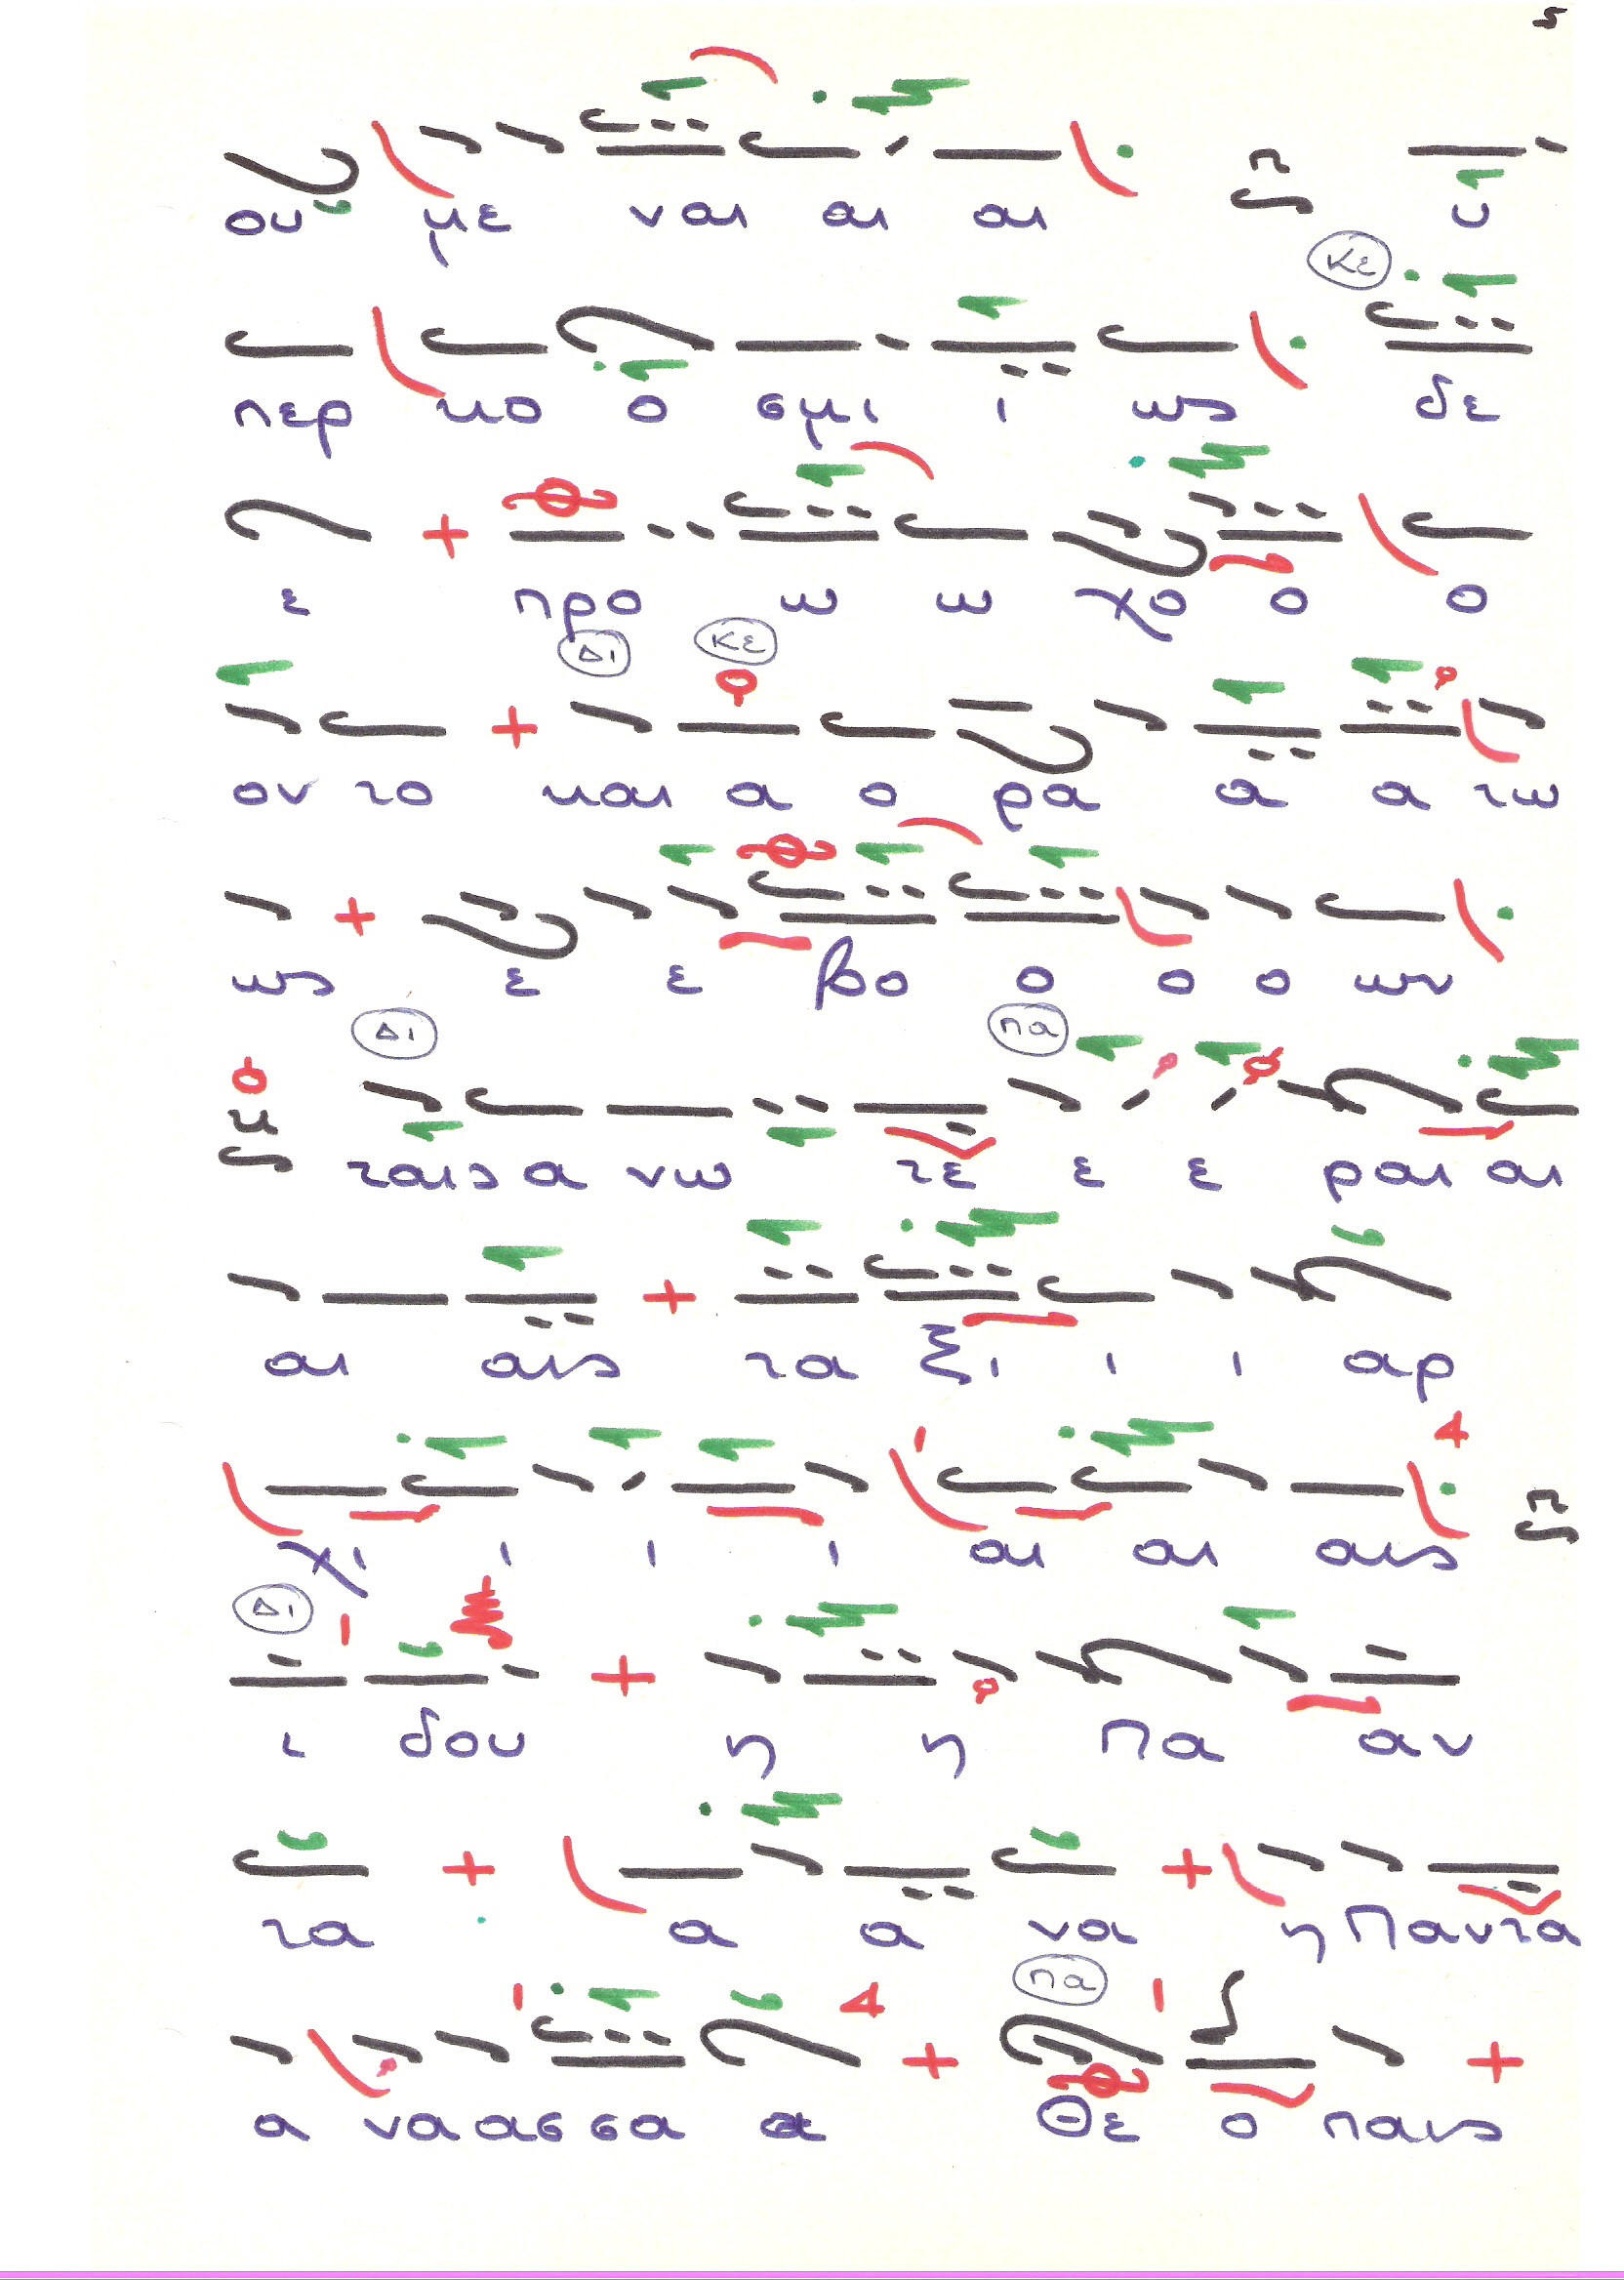 5
ου με ναι αι αι π υ
κε
περ κο ο σμι ι ως δε
ε προ ω ω χο ο ο
Δι κε
ον το και α ο ρα α α τω
ως ε ε βο ο ο ο ων
Δι πα
κ ταις α νω τε ε ε ραι αι
αι αις τα ξι ι ι αρ
4
χι ι ι ι αι αι αις π
Δι
ι δου η η Πα αν
τα α α να η Παντα
πα
4
α να ασ σα α Θε ο παις